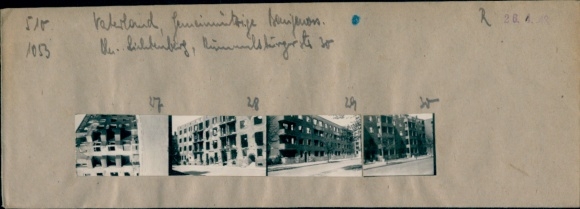 510 Vaterland, Gemeinnützige Baugenoss. R
1053 Bln. Lichtenberg, Rummelsburger Str 30
27 28 29 30